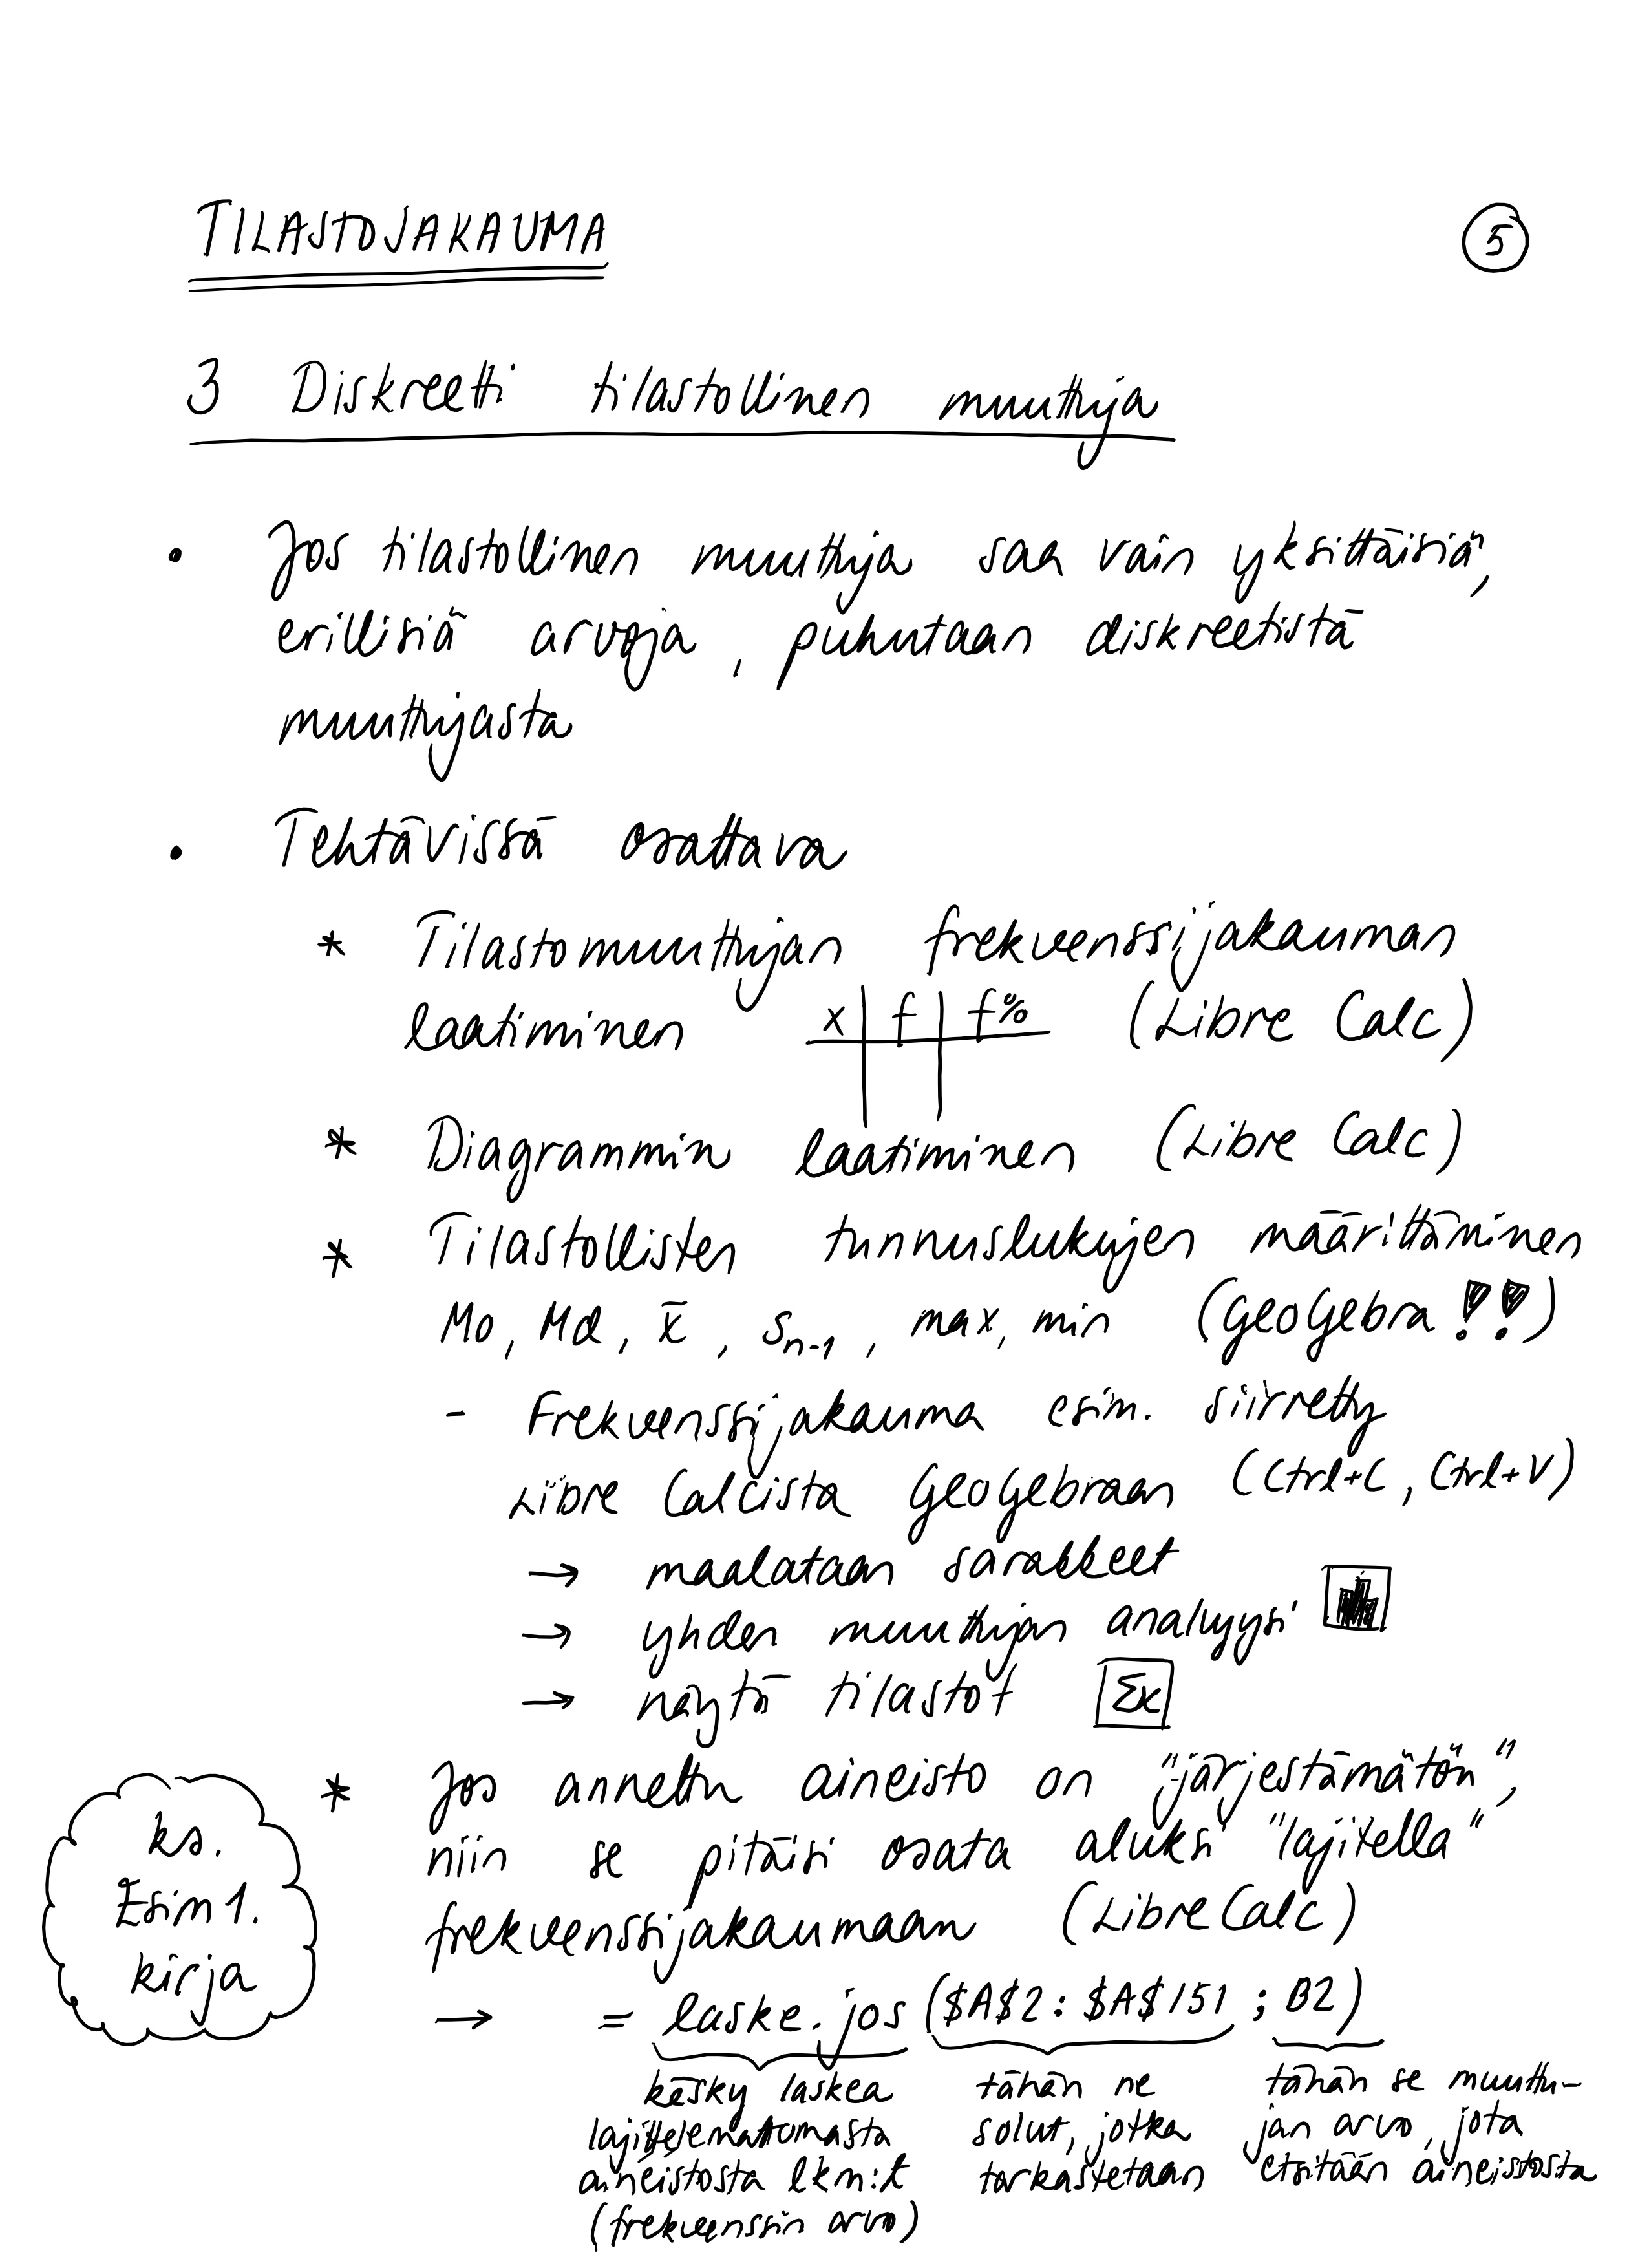 TILASTOJAKAUMA
5
3 Diskreetti tilastollinen muuttuja
• Jos tilastollinen muuttuja saa vain yksittäisiä,
erillisiä arvoja, puhutaan diskreetistä
muuttujasta
• Tehtävissä osattava
* Tilastomuuttujan frekvenssijakauman
laatiminen x f f% (Libre Calc)
* Diagrammin laatiminen (Libre Calc)
* Tilastollisten tunnuslukujen määrittäminen
Mo, Md, x̄, sₙ₋₁, max, min (GeoGebra !!)
- Frekvenssijakauma esim. siirretty
Libre Calcista GeoGebraan (Ctrl+C, Ctrl+V)
→ maalataan sarakkeet
→ yhden muuttujan analyysi
→ näytä tilastot Σx
* Jos annettu aineisto on "järjestämätön",
niin se pitäisi osata aluksi "lajitella"
frekvenssijakaumaan (Libre Calc)
ks.
Esim 1.
kirja
→ = laske.jos ($A$2:$A$151 ; B2)
käsky laskea
lajittelemattomasta
aineistosta lkm:t
(frekvenssin arvo)
tähän ne
solut, jotka
tarkastetaan
tähän se muuttu-
jan arvo, jota
etsitään aineistosta